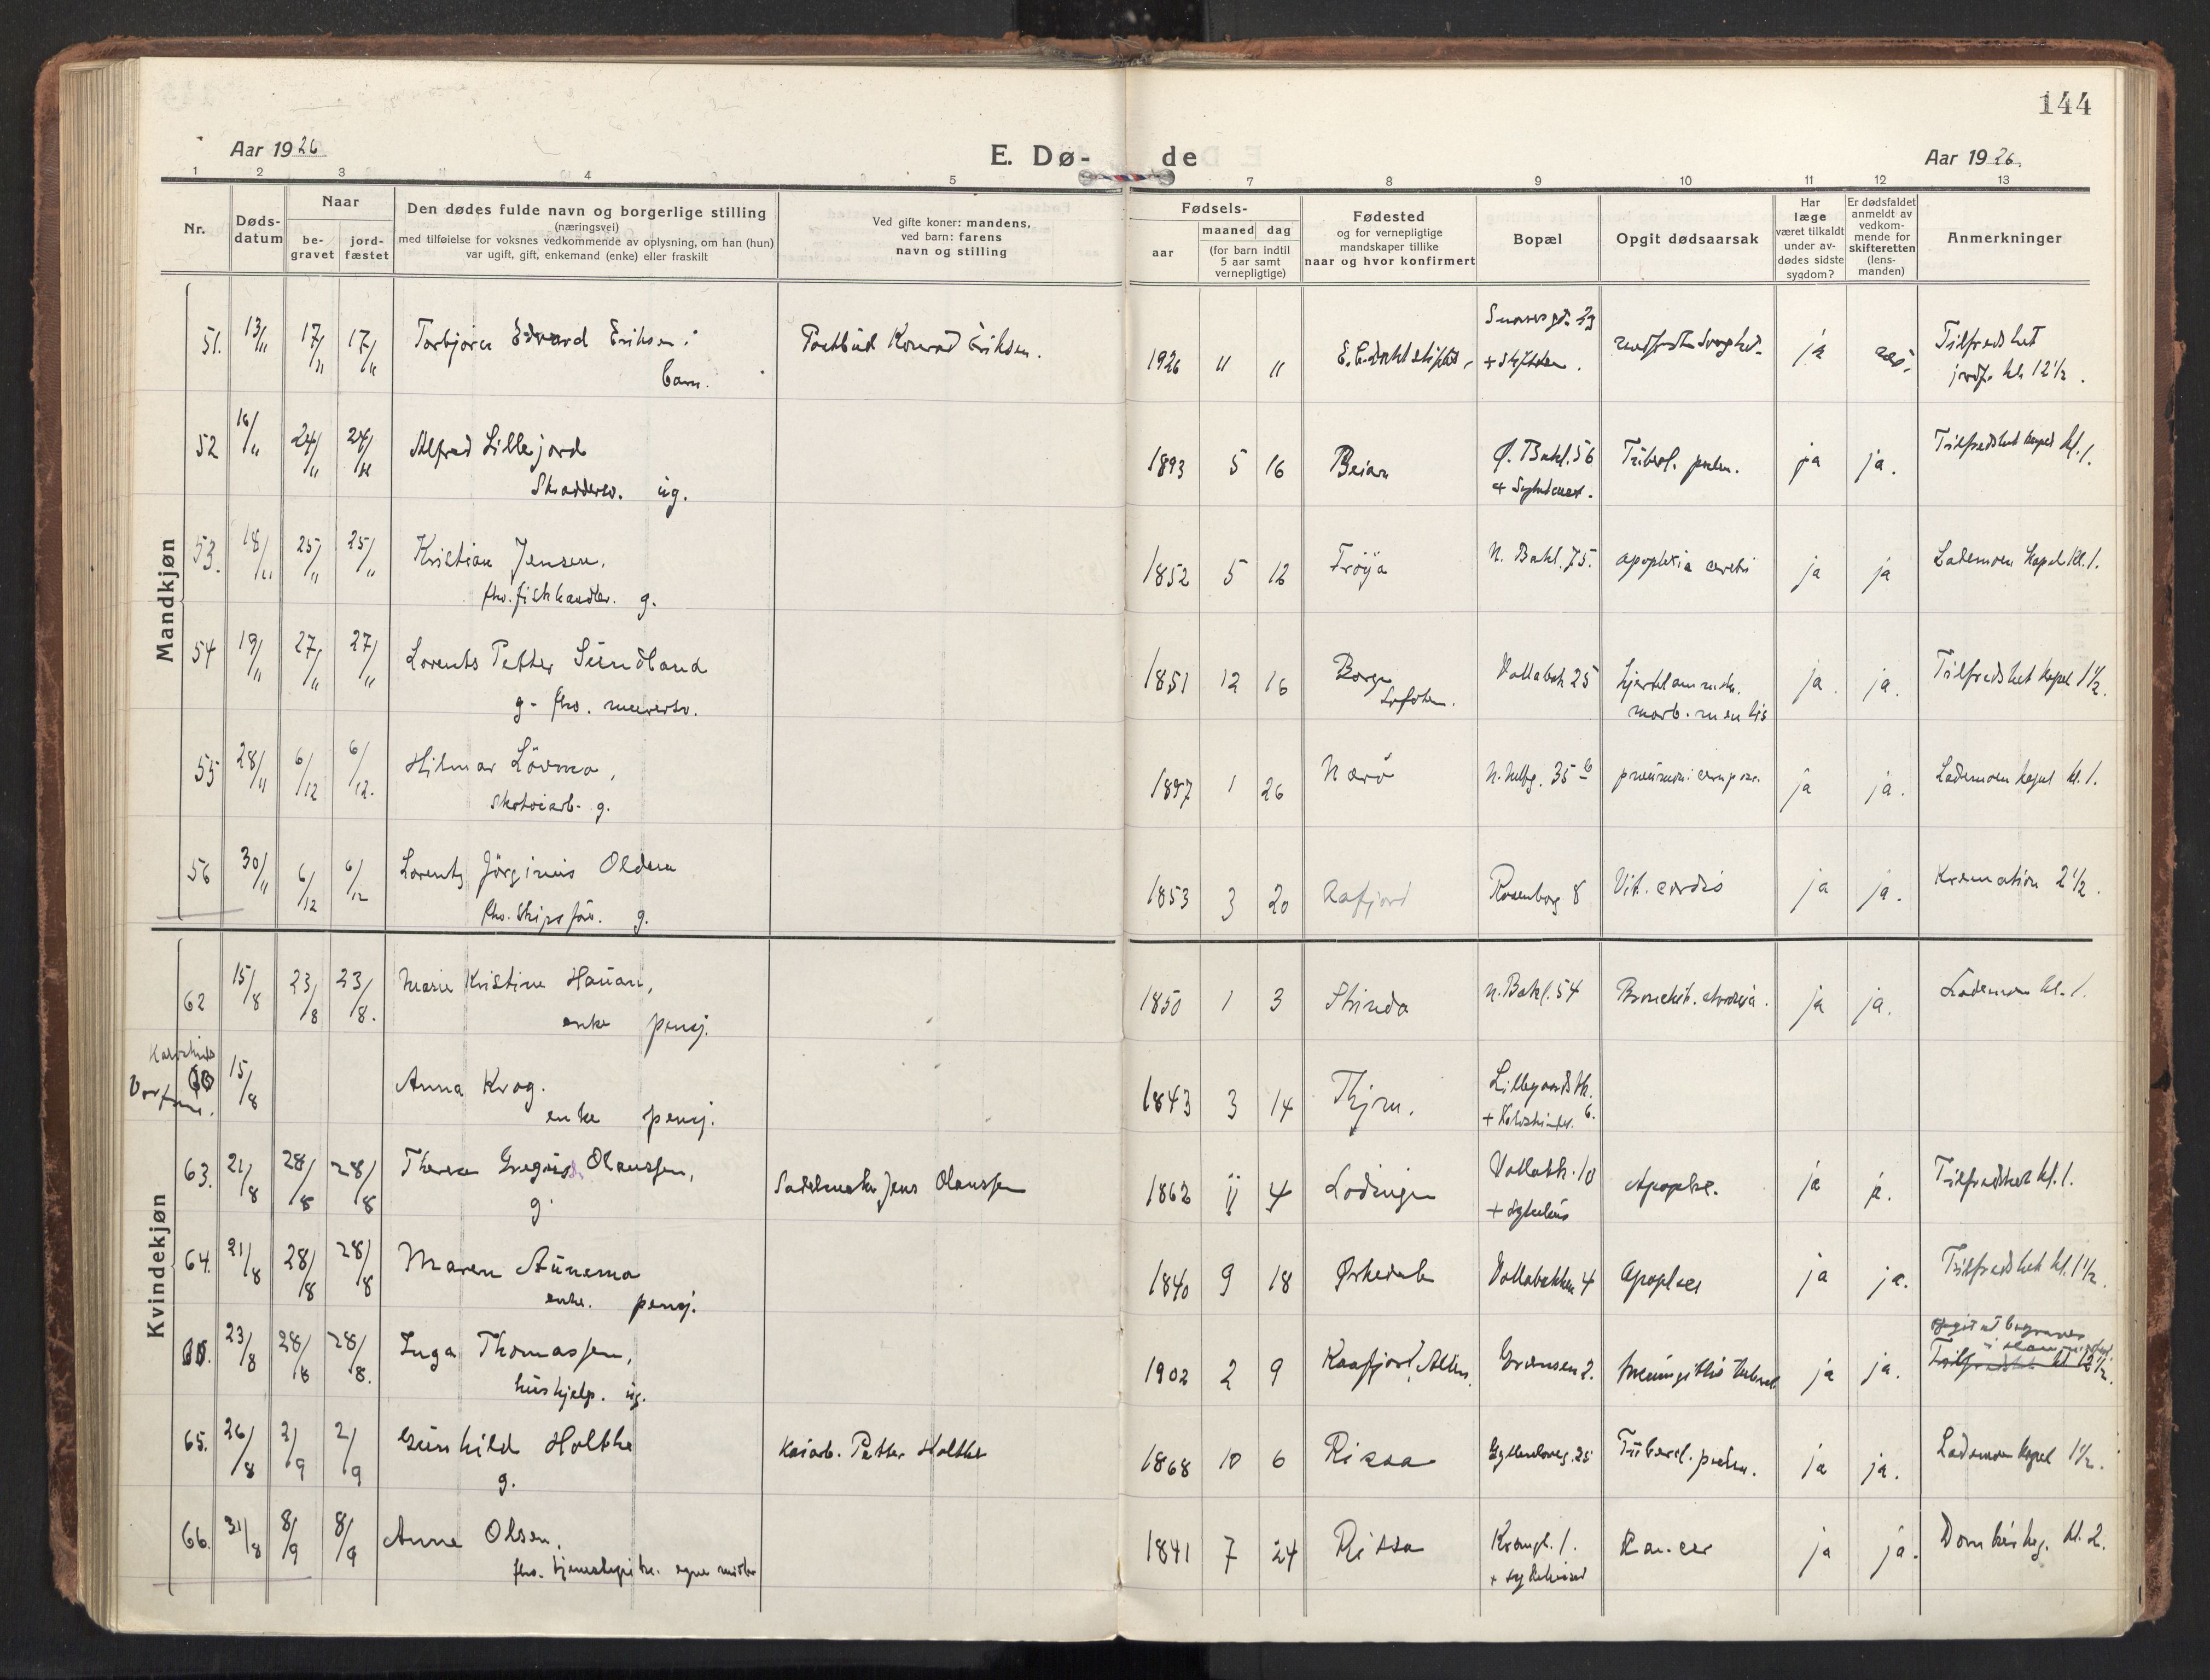 144
Aar 1926
E. Dø- de
Aar 1926.
1 2 3 4 5 7 8 9 10 11 12 13
Nr.
Døds-
datum
Naar
be-
gravet
jord-
fæstet
Den dødes fulde navn og borgerlige stilling
(næringsvei)
med tilføielse for voksnes vedkommende av oplysning, om han (hun)
var ugift, gift, enkemand (enke) eller fraskilt
Ved gifte koner: mandens,
ved barn: farens
navn og stilling
Fødsels-
aar
maaned dag
(for barn indtil
5 aar samt
vernepligtige)
Fødested
og for vernepligtige
mandskaper tillike
naar og hvor konfirmert
Bopæl
Opgit dødsaarsak
Har
læge
været tilkaldt
under av-
dødes sidste
sygdom?
Er dødsfaldet
anmeldt av
vedkom-
mende for
skifteretten
(lens-
manden)
Anmerkninger
Mandkjøn
51. 13/11 17/11 17/11 Torbjørn Edvard Eriksen: Postbud Konrad Eriksen. 1926 11 11 E.C. Dahls stiftelse ja nei. Tilfredshet
barn. + Stiftelsen. jordf. kl. 12 1/2.
52 16/11 24/11 24/11 Alfred Lillejord 1893 5 16 Beian Ø. Bakl. 56 Tuberl. pulm. ja ja. Tilfredshet kapel kl. 1.
Skræddersv. ug.
53. 18/11 25/11 25/11 Kristian Jensen. 1852 5 12 Frøya N. Bakl. 75. apoplexia cerebri ja ja Lademoen Kapel kl. 1.
fhv. fiskhandler. g.
54 19/11 27/11 27/11 Lorents Petter Sundland 1851 12 16 Borge Vollabak 25 ja. ja. Tilfredshet kapel 1 1/2.
g. fhv. murersv. Lofoten. morb. mentis
55 28/11 6/12 6/12. Hilmar Lövmo, 1897 1 26 Nærö 35 b ja ja. Lademoen kapel kl. 1.
skotøiarb. g.
56 30/11 6/12 6/12 Lorents Jörginus Olden 1853 3 20 Aafjord Rosenborg 8 Vit. cordis ja ja. Kremation 2 1/2.
fhv. Skipsför. g.
Kvindekjøn
62 15/8 23/8 23/8. Marie Kristine Hauan, 1850 1 3 Strinda N. Bakl. 54 ja ja. Lademoen kl. 1.
enke pensj.
Kalvskinds
Vor Frue. 15/8 Anna Krog. 1843 3 14 Lillegaardsbk.
enke pensj. + Kalvskindet 6.
63. 21/8 28/8 28/8 Therese Olaussen, Sadelmaker Jens Olaussen 1862 11 4 Lödingen Vollabk. 10 Apoplex. ja ja. Tilfredshet kl. 1.
g. + Sykehus
64. 21/8 28/8 28/8 Maren Aunemo 1840 9 18 Orkedalen Vollabakken 4 apoplexi ja ja. Tilfredshet kl. 1 1/2.
enke. pensj.
23/8 28/8 28/8. Inga Thomassen, 1902 2 9 Kaafjord, Alten. Grænsen 2. meningitis tuberl. ja ja. opgit at begraves
hushjelp. ug. Tilfredshet kl 12 1/2.
65. 26/8 2/9 2/9 Gunhild Holthe Kaiarb. Petter Holthe 1868 10 6 Rissa Gyldenløvesg. 25 Tubercl. pulm. ja ja. Lademoen kapel 1 1/2.
g.
66. 31/8 8/9 8/9 Anne Olsen. 1841 7 24 Rissa 1. Cancer ja ja. Domkirkeg. kl. 2.
fhv. tjenestepike. egne midler + Sykehuset